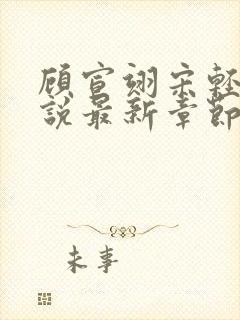 顾宣翊宋轻
说最新章节
未事